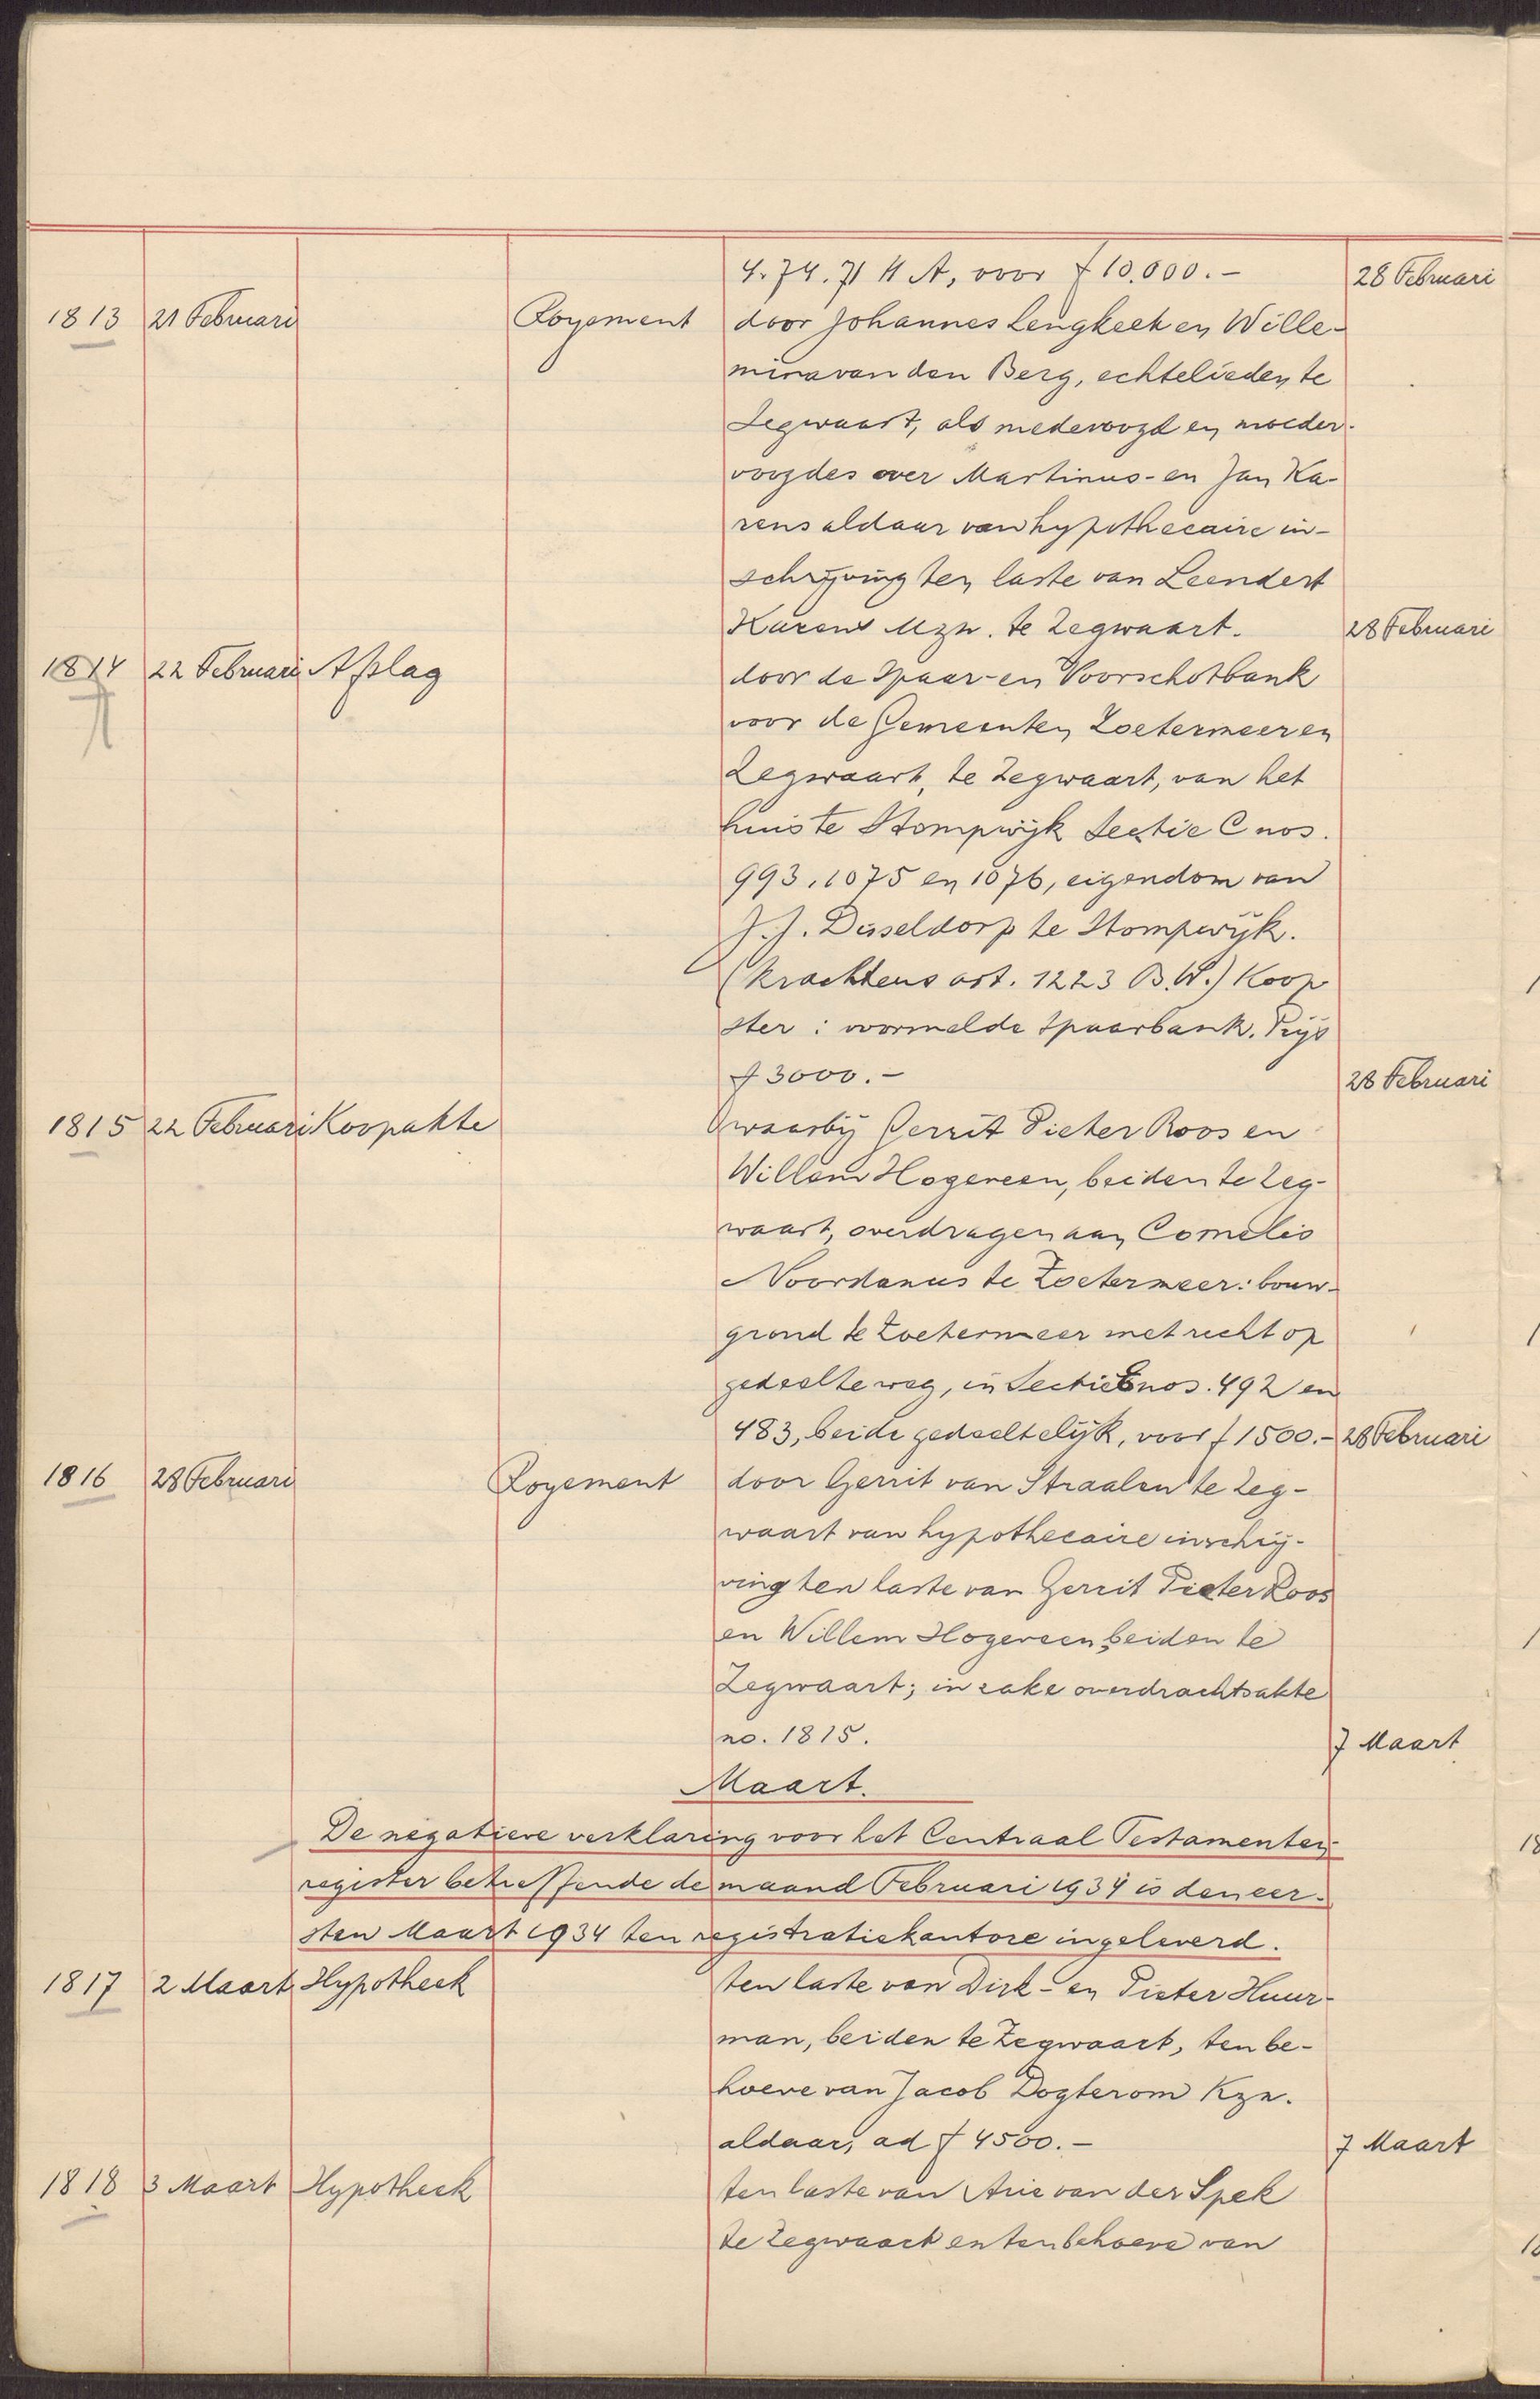 4.74.71 H A, voor f 10.000.- 28 Februari
1813 21 Februari Royement door Johannes Lengkeek en Wille-
mina van den Berg, echtelieden te
Zegwaart, als medevoogd en moeder-
voogdes over Martinus- en Jan Ka-
rens aldaar van hypothecaire in-
schrijving ten laste van Leendert
Karens Mzn. te Zegwaart. 28 Februari
1814 22 Februari Afslag door de Spaar- en Voorschotbank
voor de Gemeenten Zoetermeer en
Zegwaart, te Zegwaart, van het
huis te Stompwijk Sectie C nos.
993, 1075 en 1076, eigendom van
J.J. Dusseldorp te Stompwijk.
(krachtens art. 1223 B.W.) Koop
ster: voormelde Spaarbank. Prijs
f 3000.- 28 Februari
1815 22 Februari Koopakte waarbij Gerrit Pieter Roos en
Willem Hogeveen, beiden te Zeg-
waart, overdragen aan Cornelis
Noordanus te Zoetermeer: bouw-
grond te Zoetermeer met recht op
gedeelte weg, in Sectie nos. 492 en
483, beide gedeeltelijk, voor f 1500.- 28 Februari
1816 28 Februari Royement door Gerrit van Straalen te Zeg-
waart van hypothecaire inschrij-
ving ten laste van Gerrit Pieter Roos
en Willem Hogeveen, beiden te
Zegwaart; in zake overdrachtsakte
no. 1815. 7 Maart
Maart.
De negatieve verklaring voor het Centraal Testamenten-
register betreffende de maand Februari 1934 is den eer-
sten Maart 1934 ten registratiekantore ingeleverd.
1817 2 Maart Hypotheek ten laste van Dirk- en Pieter Huur-
man, beiden te Zegwaart, ten be-
hoeve van Jacob Dogterom Kzn.
aldaar, ad f 4500.- 7 Maart
1818 3 Maart Hypotheek ten laste van Arie van der Spek
te Zegwaart en ten behoeve van